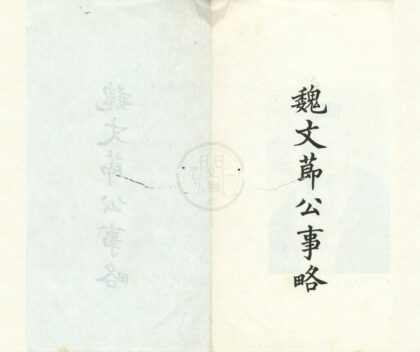 魏文莭公事略